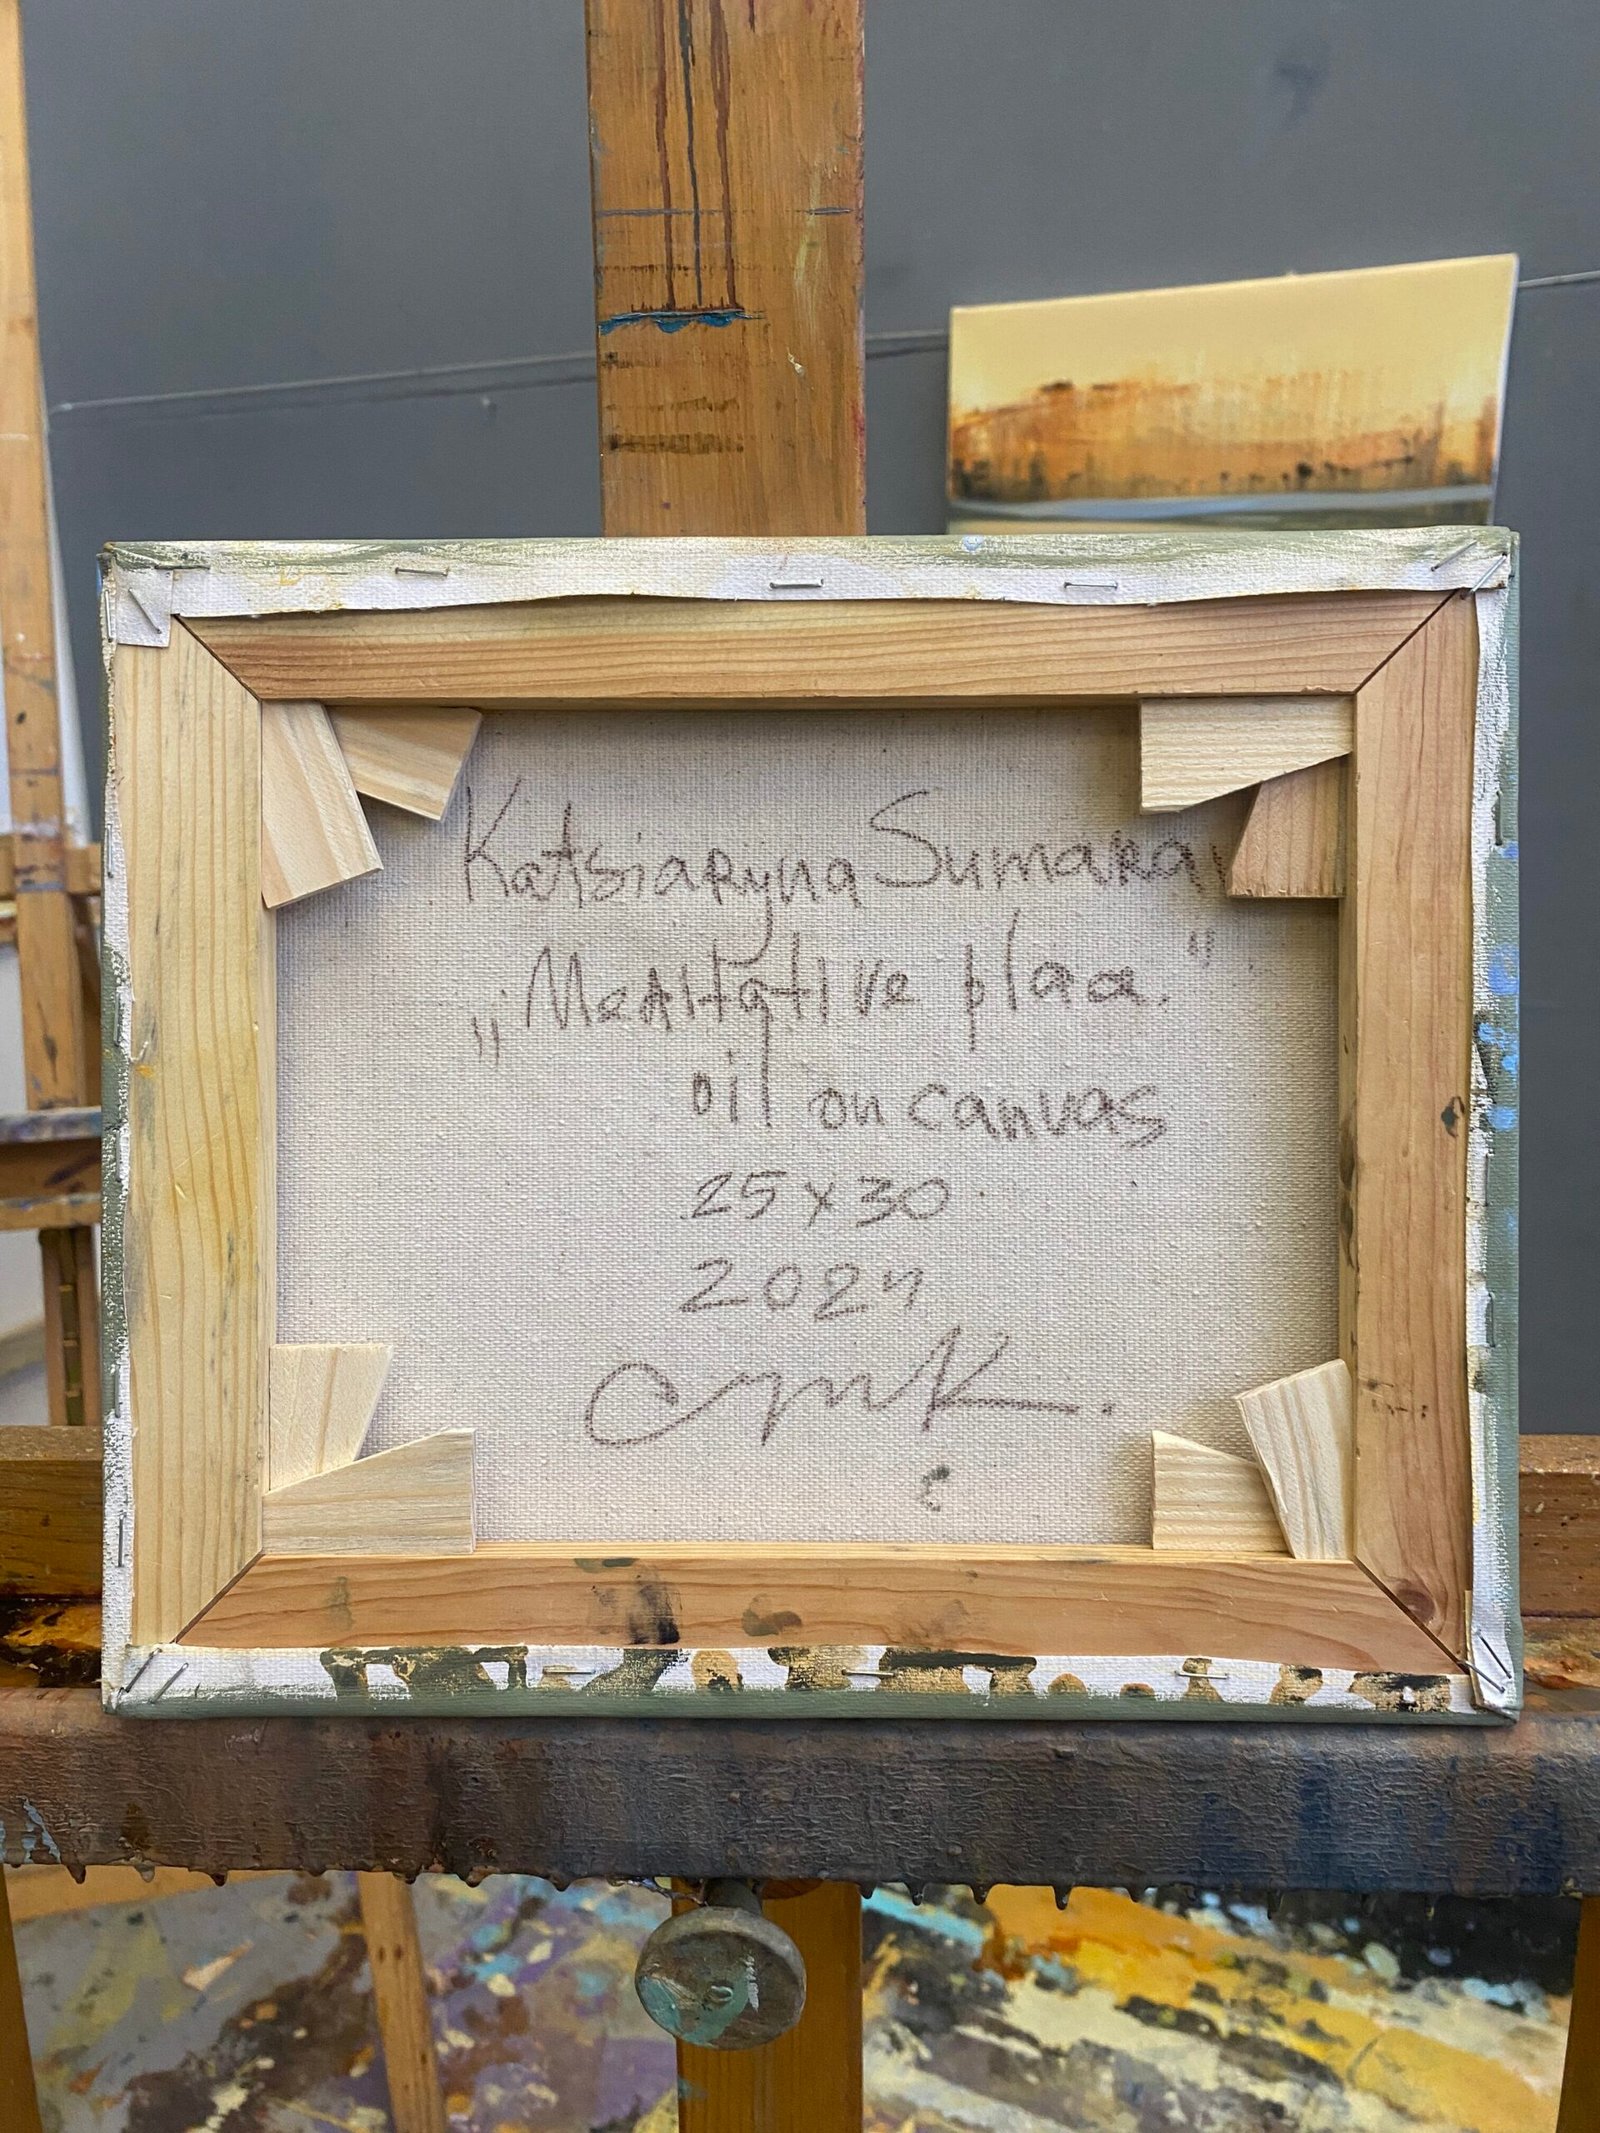 Katsiaryna Sumarav
„Meditative plaa."
oil on canvas
25x30
2024